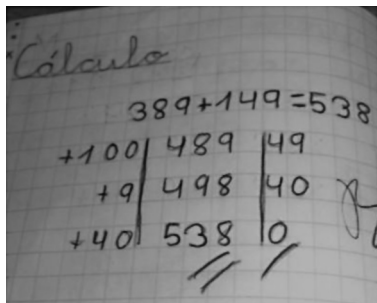 Cálculo
389+149=538
+100 | 489 | 49
+9 | 498 | 40
+40 | 538 | 0